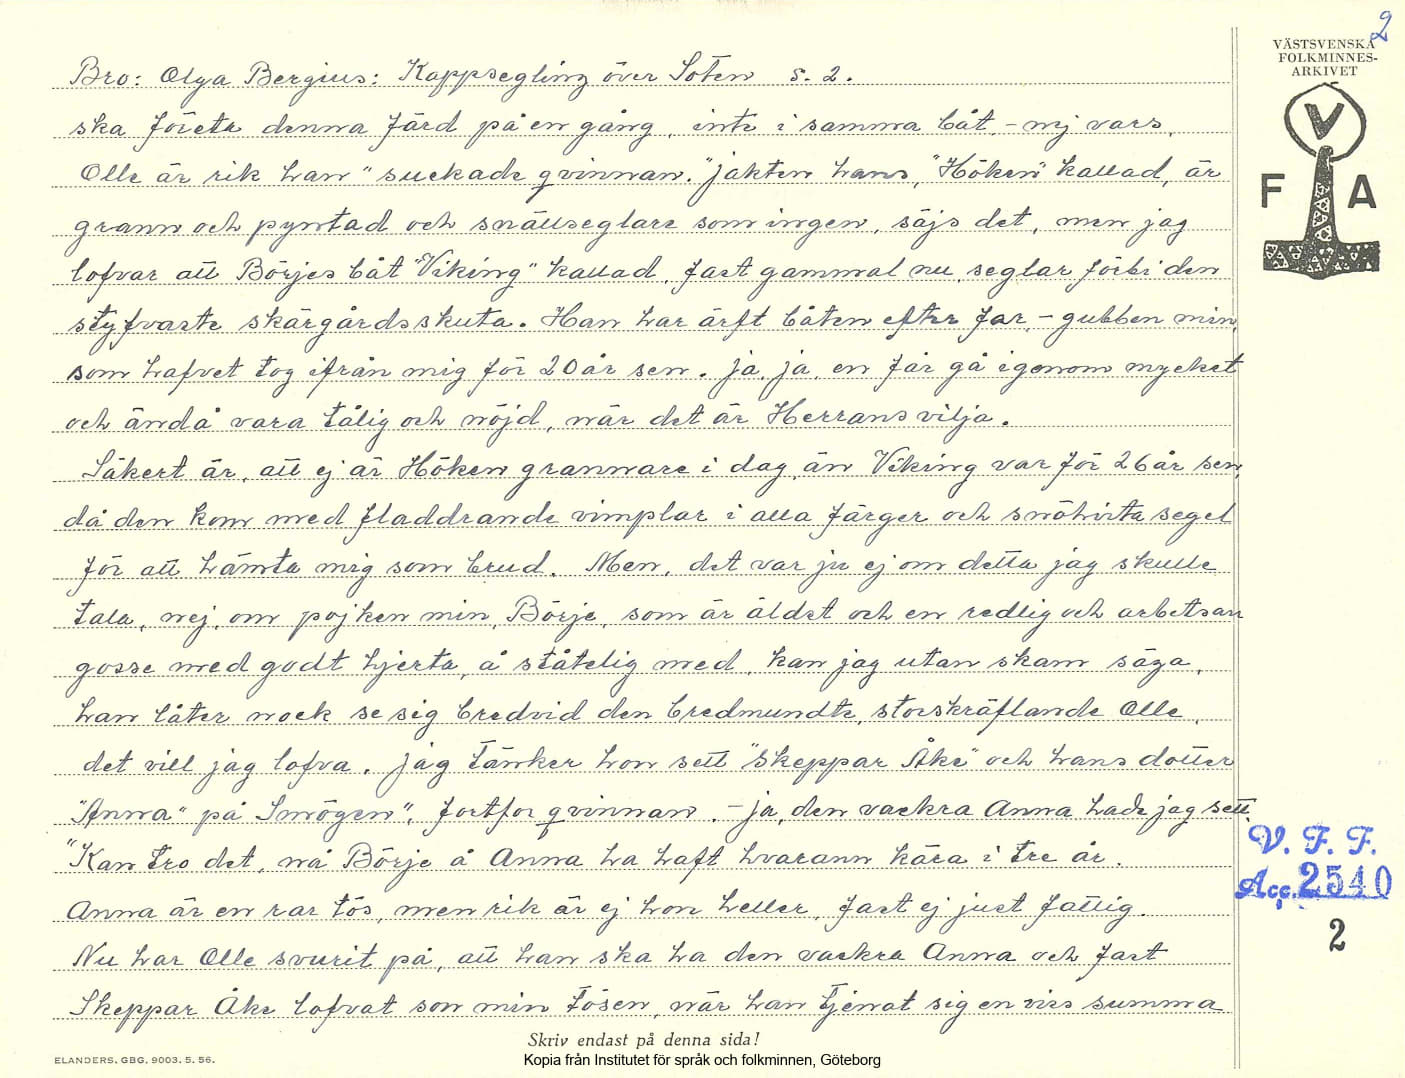 2
VÄSTSVENSKA
FOLKMINNES-
ARKIVET
V
F A
Bro: Olga Bergius: Kappsegling över Soten s. 2.
ska företa denna färd på en gång, inte i samma båt, – nej vars,
Olle är rik han" suckade qvinnan. "jakten hans, "Höken" kallad, är
grann och pyntad och snällseglare som ingen, säjs det, men jag
lofvar att Börjes båt "Viking" kallad, fast gammal nu, seglar förbi den
styfvaste skärgårdsskuta. Han har ärft båten efter far, – gubben min,
som hafvet tog ifrån mig för 20 år sen. ja, ja, en får gå igenom mycket
och ändå vara tålig och nöjd, när det är Herrans vilja.
Säkert är, att ej är Höken grannare i dag, än Viking var för 26 år sen,
då den kom med fladdrande vimplar i alla färger och snöhvita segel
för att hämta mig som brud. Men, det var ju ej om detta jag skulle
tala, nej, om pojken min, Börje, som är äldst och en redlig och arbetsam
gosse med godt hjerta, å ståtelig med, kan jag utan skam säga,
han låter nock se sig bredvid den bredmundte, storskräflande Olle,
det vill jag lofva. jag tänker hon sett "Skeppar Åke" och hans dotter
"Anna" på Smögen", fortfor qvinnan. – ja, den vackra Anna hade jag sett.
"Kan tro det, nå Börje å Anna ha haft hvarann kära i tre år.
Anna är en rar tös, men rik är ej hon heller, fast ej just fattig.
Nu har Olle svurit på, att han ska ha den vackra Anna och fast
Skeppar Åke lofvat son min tösen, när han tjenat sig en viss summa
V. F. F.
Acc. 2540
2
Skriv endast på denna sida!
ELANDERS. GBG. 9003. 5. 56.
Kopia från Institutet för språk och folkminnen, Göteborg